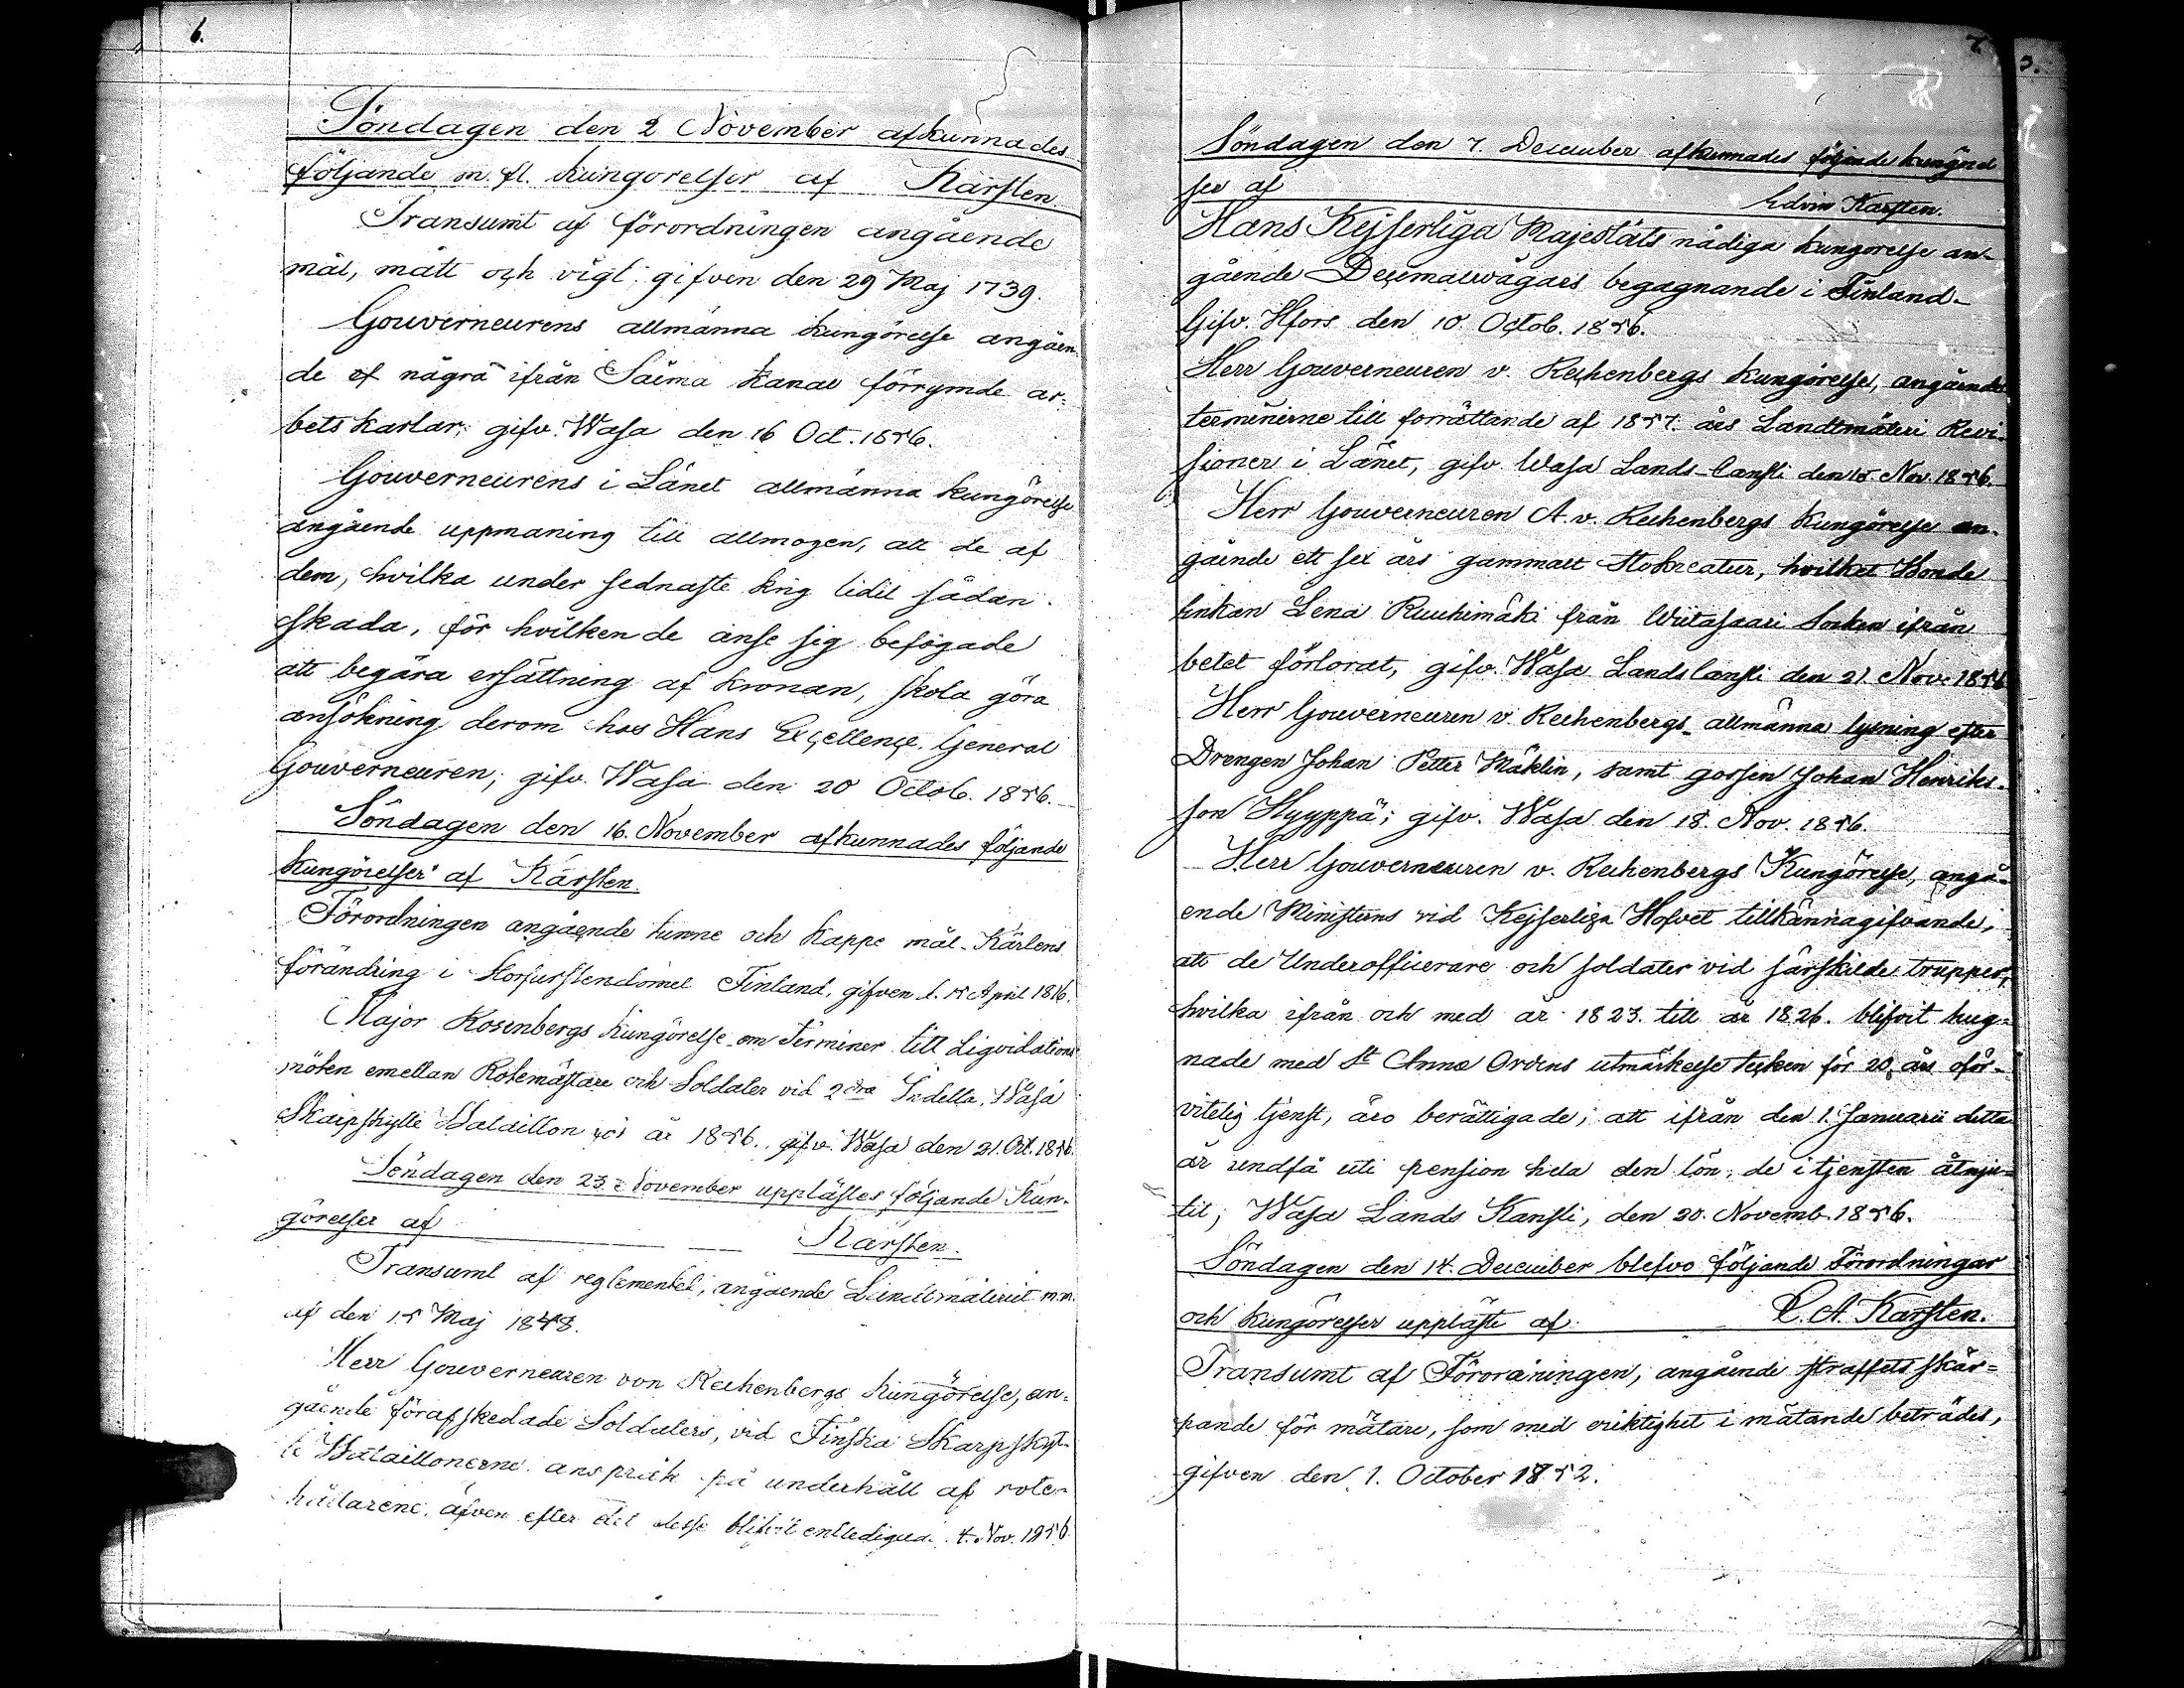 6.
Söndagen den 2 November afkunnades
följande m. fl. kungörelser af Karsten
Transumt af förordningen angående
mål, mått och vigt; gifven den 29 Maj 1739.
Gouverneurens allmänna kungörelse angåen
de af några ifrån Saima Kanal förrymde ar=
betskarlar; gifv. Wasa den 16 Oct. 1856.
Gouverneurens i Länet allmänna kungörelse
angående uppmaning till allmogen, att de af
dem, hvilka under sednaste krig lidit sådan
skada, för hvilken de anse sig befogade
att begära ersättning af kronan, skola göra
ansökning derom hos Hans Excellence General
Gouverneuren; gifv. Wasa den 20 Octob. 1856.
Söndagen den 16. November afkunnades följande
kungörelser af Karsten.
Förordningen angående tunne och kappe mål-kärlens
förändring i Storfurstendömet Finland, gifven d. 15 April 1816.
Major Rosenbergs kungörelse om Terminer till Liqvidations
möten emellan Rotemästare och Soldater vid 2dra Indelta Wasa
Skarpskytte Bataillon för år 1856., gifv. Wasa den 21. Oct. 1856.
Söndagen den 23. November upplästes följande Kun-
görelser af Karsten.
Transumt af reglementet, angående Landtmäteriet m.m.
af den 15 Maj 1848.
Herr Gouverneuren von Rechenbergs kungörelse, an=
gående förafskedade Soldaters, vid Finska Skarpskyt-
te Bataillonerne anspråk på underhåll af rote-
hållarene, äfven efter det desse blifvit entledigade. 4. Nov. 1856
7.
Söndagen den 7. December afkunnades följande kungörel
ser af Edvin Karsten.
Hans Kejserliga Majestäts nådiga kungörelse an-
gående Decimalvågars begagnande i Finland-
Gifv. Hfors den 10. Octob. 1856.
Herr Gouverneuren v. Rechenbergs kungörelse, angående
terminerne till förrättande af 1857. års Landtmäteri Revi-
sioner i Länet, gifv. Wasa Lands-Cansli den 15. Nov. 1856.
Herr Gouverneuren A. v. Rechenbergs Kungörelse an-
gående ett sex års gammalt Stokreatur, hvilket Bonde
enkan Lena Ruuhimäki från Wiitasaari Socken ifrån
betet förlorat, gifv. Wasa Landscansli den 21. Nov. 1856
Herr Gouverneuren v. Rechenbergs allmänna lysning efter
Drengen Johan Petter Mäklin, samt gossen Johan Henriks-
son Hyyppä; gifv. Wasa den 18. Nov. 1856.
Herr Gouverneuren v. Rechenbergs Kungörelse, angå-
ende Ministerns vid Kejserliga Hofvet tillkännagifvande,
att de Underofficerare och soldater vid särskilde trupper,
hvilka ifrån och med år 1823. till år 1826. blifvit hug-
nade med St Anna Ordens utmärkelse tecken för 20. års oför-
vitelig tjenst, äro berättigade; att ifrån den 1. Januarii detta
år undfå uti pension hela den lön, de i tjensten åtnju-
tit; Wasa Lands Kansli, den 20. Novemb. 1856.
Söndagen den 14. December blefvo följande Förordningar
och kungörelser uppläste af C. A. Karsten.
Transumt af Förordningen, angående straffets skär=
pande för mätare, som med oriktighet i mätande beträdes,
gifven den 1. October 1852.